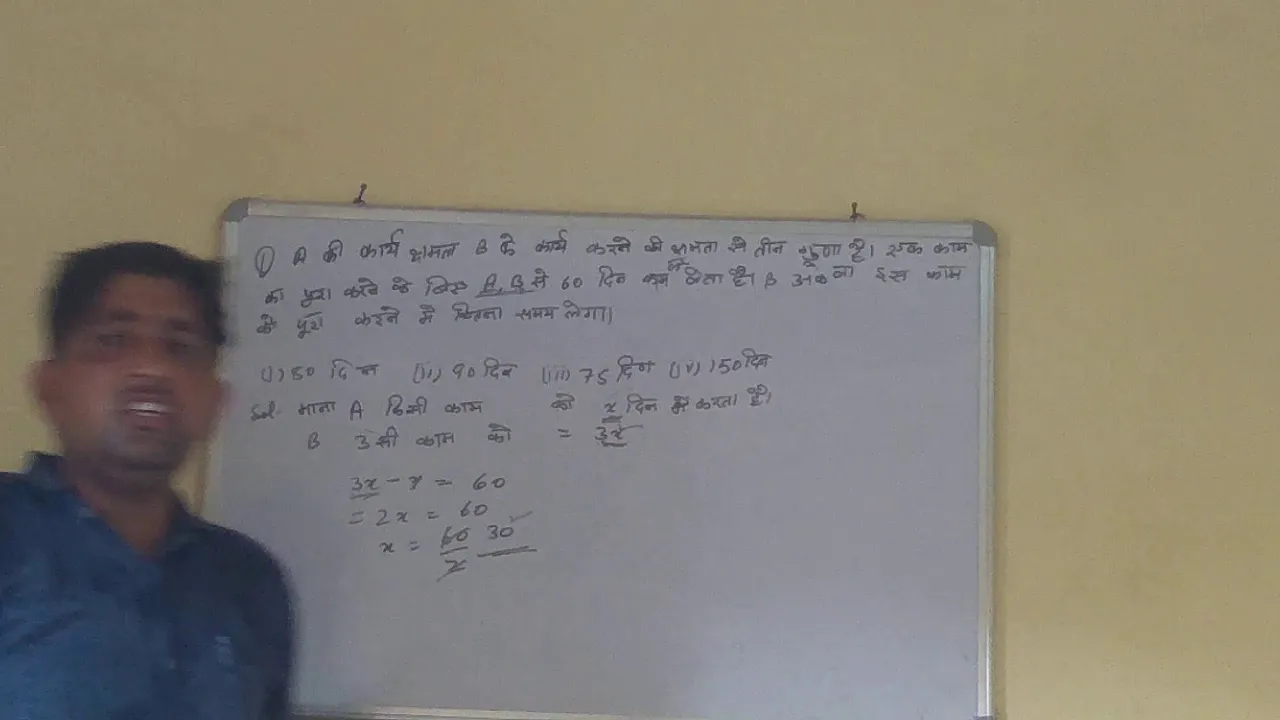 ① A की कार्य क्षमता B के कार्य करने की क्षमता से तीन गुणा है। एक काम
को पूरा करने के लिए A, B से 60 दिन कम लेता है। B अकेला इस काम
को पूरा करने में कितना समय लेगा।
(i) 80 दिन (ii) 90 दिन (iii) 75 दिन (iv) 150 दिन
Sol- माना A किसी काम को x दिन में करता है।
B उसी काम को = 3x
3x - x = 60
= 2x = 60
x = 60 30
2